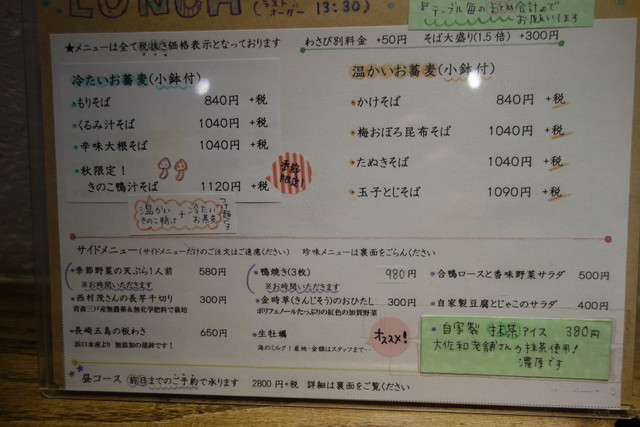 LUNCH
(ラストオーダー 13:30)
テーブル毎のまとめ会計で
お願いします
★メニューは全て税抜き価格表示となっております
わさび別料金 +50円 そば大盛り(1.5倍) +300円
冷たいお蕎麦(小鉢付)
もりそば 840円 +税
くるみ汁そば 1040円 +税
辛味大根そば 1040円 +税
秋限定!
きのこ鴨汁そば 1120円 +税
季節限定!
温かいきのこ鴨汁+冷たいお蕎麦
つけ麺です
温かいお蕎麦(小鉢付)
かけそば 840円 +税
梅おぼろ昆布そば 1040円 +税
たぬきそば 1040円 +税
玉子とじそば 1090円 +税
サイドメニュー(サイドメニューだけのご注文はご遠慮ください) 珍味メニューは裏面をごらんください
季節野菜の天ぷら1人前 580円
※お時間いただきます
西村茂さんの長芋千切り 300円
青森三戸産無農薬&無化学肥料で栽培
長崎五島の板わさ 650円
浜口水産より 無添加の蒲鉾です!
鴨焼き(3枚) 980円
※お時間いただきます
金時草(きんじそう)のおひたし 300円
ポリフェノールたっぷりの紅色の加賀野菜
生牡蠣
海のミルク!産地・金額はスタッフまで…
オススメ!
合鴨ロースと香味野菜サラダ 500円
自家製豆腐とじゃこのサラダ 400円
自家製 抹茶アイス 380円
大佐和老舗さんの抹茶使用!
濃厚です
昼コース 前日までのご予約で承ります 2800円+税 詳細は裏面をご覧ください